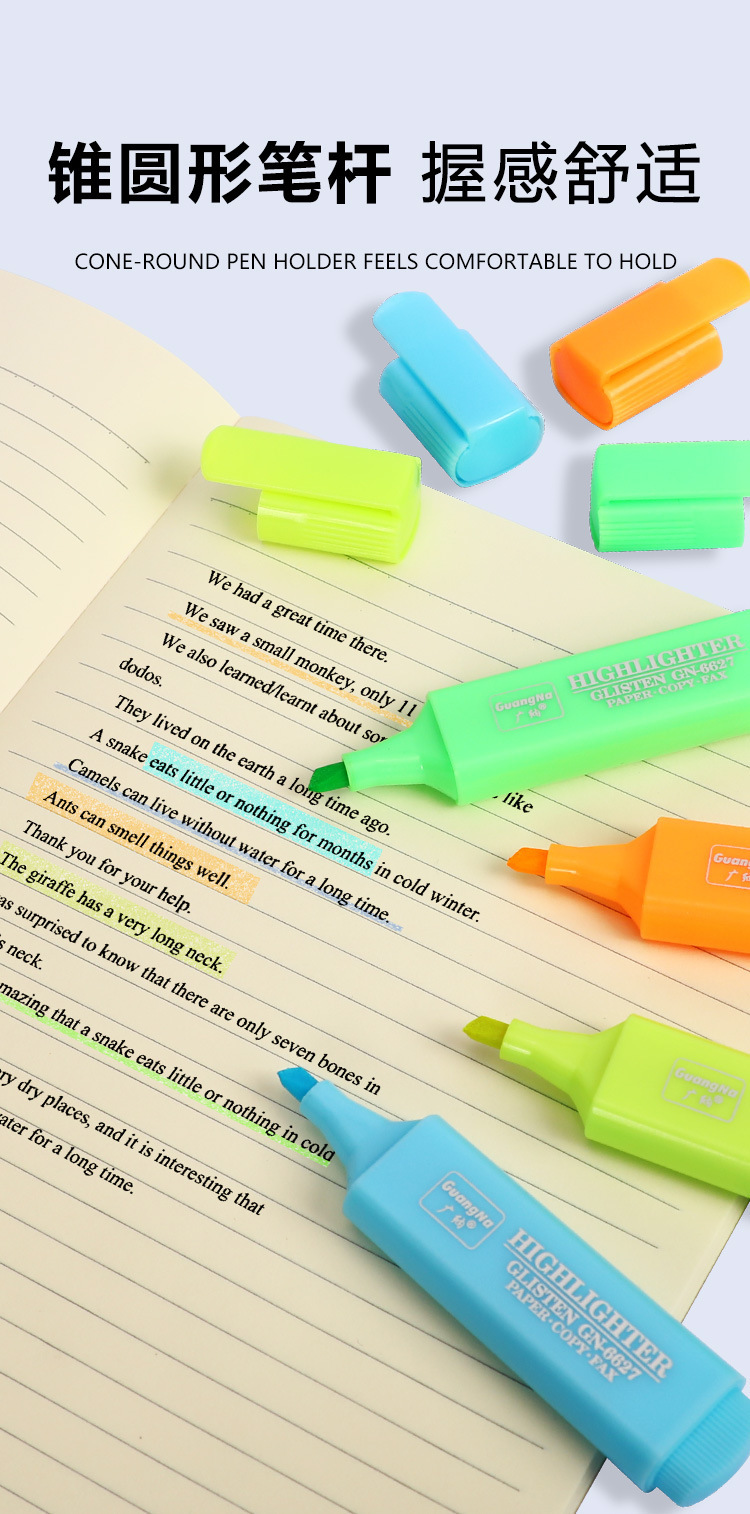 锥圆形笔杆 握感舒适
CONE-ROUND PEN HOLDER FEELS COMFORTABLE TO HOLD
We had a great time there.
We saw a small monkey, only 11
We also learned/learnt about
dodos.
They lived on the earth a long time ago.
like
A snake eats little or nothing for months in cold winter.
Camels can live without water for a long time.
Ants can smell things well.
Thank you for your help.
The giraffe has a very long neck.
surprised to know that there are only seven bones in
neck.
that a snake eats little or nothing in cold
dry places, and it is interesting that
for a long time.
GuangNa
广纳®
HIGHLIGHTER
GLISTEN GN-6627
PAPER·COPY·FAX
GuangNa
广纳®
GuangNa
广纳®
HIGHLIGHTER
GLISTEN GN-6627
PAPER·COPY·FAX